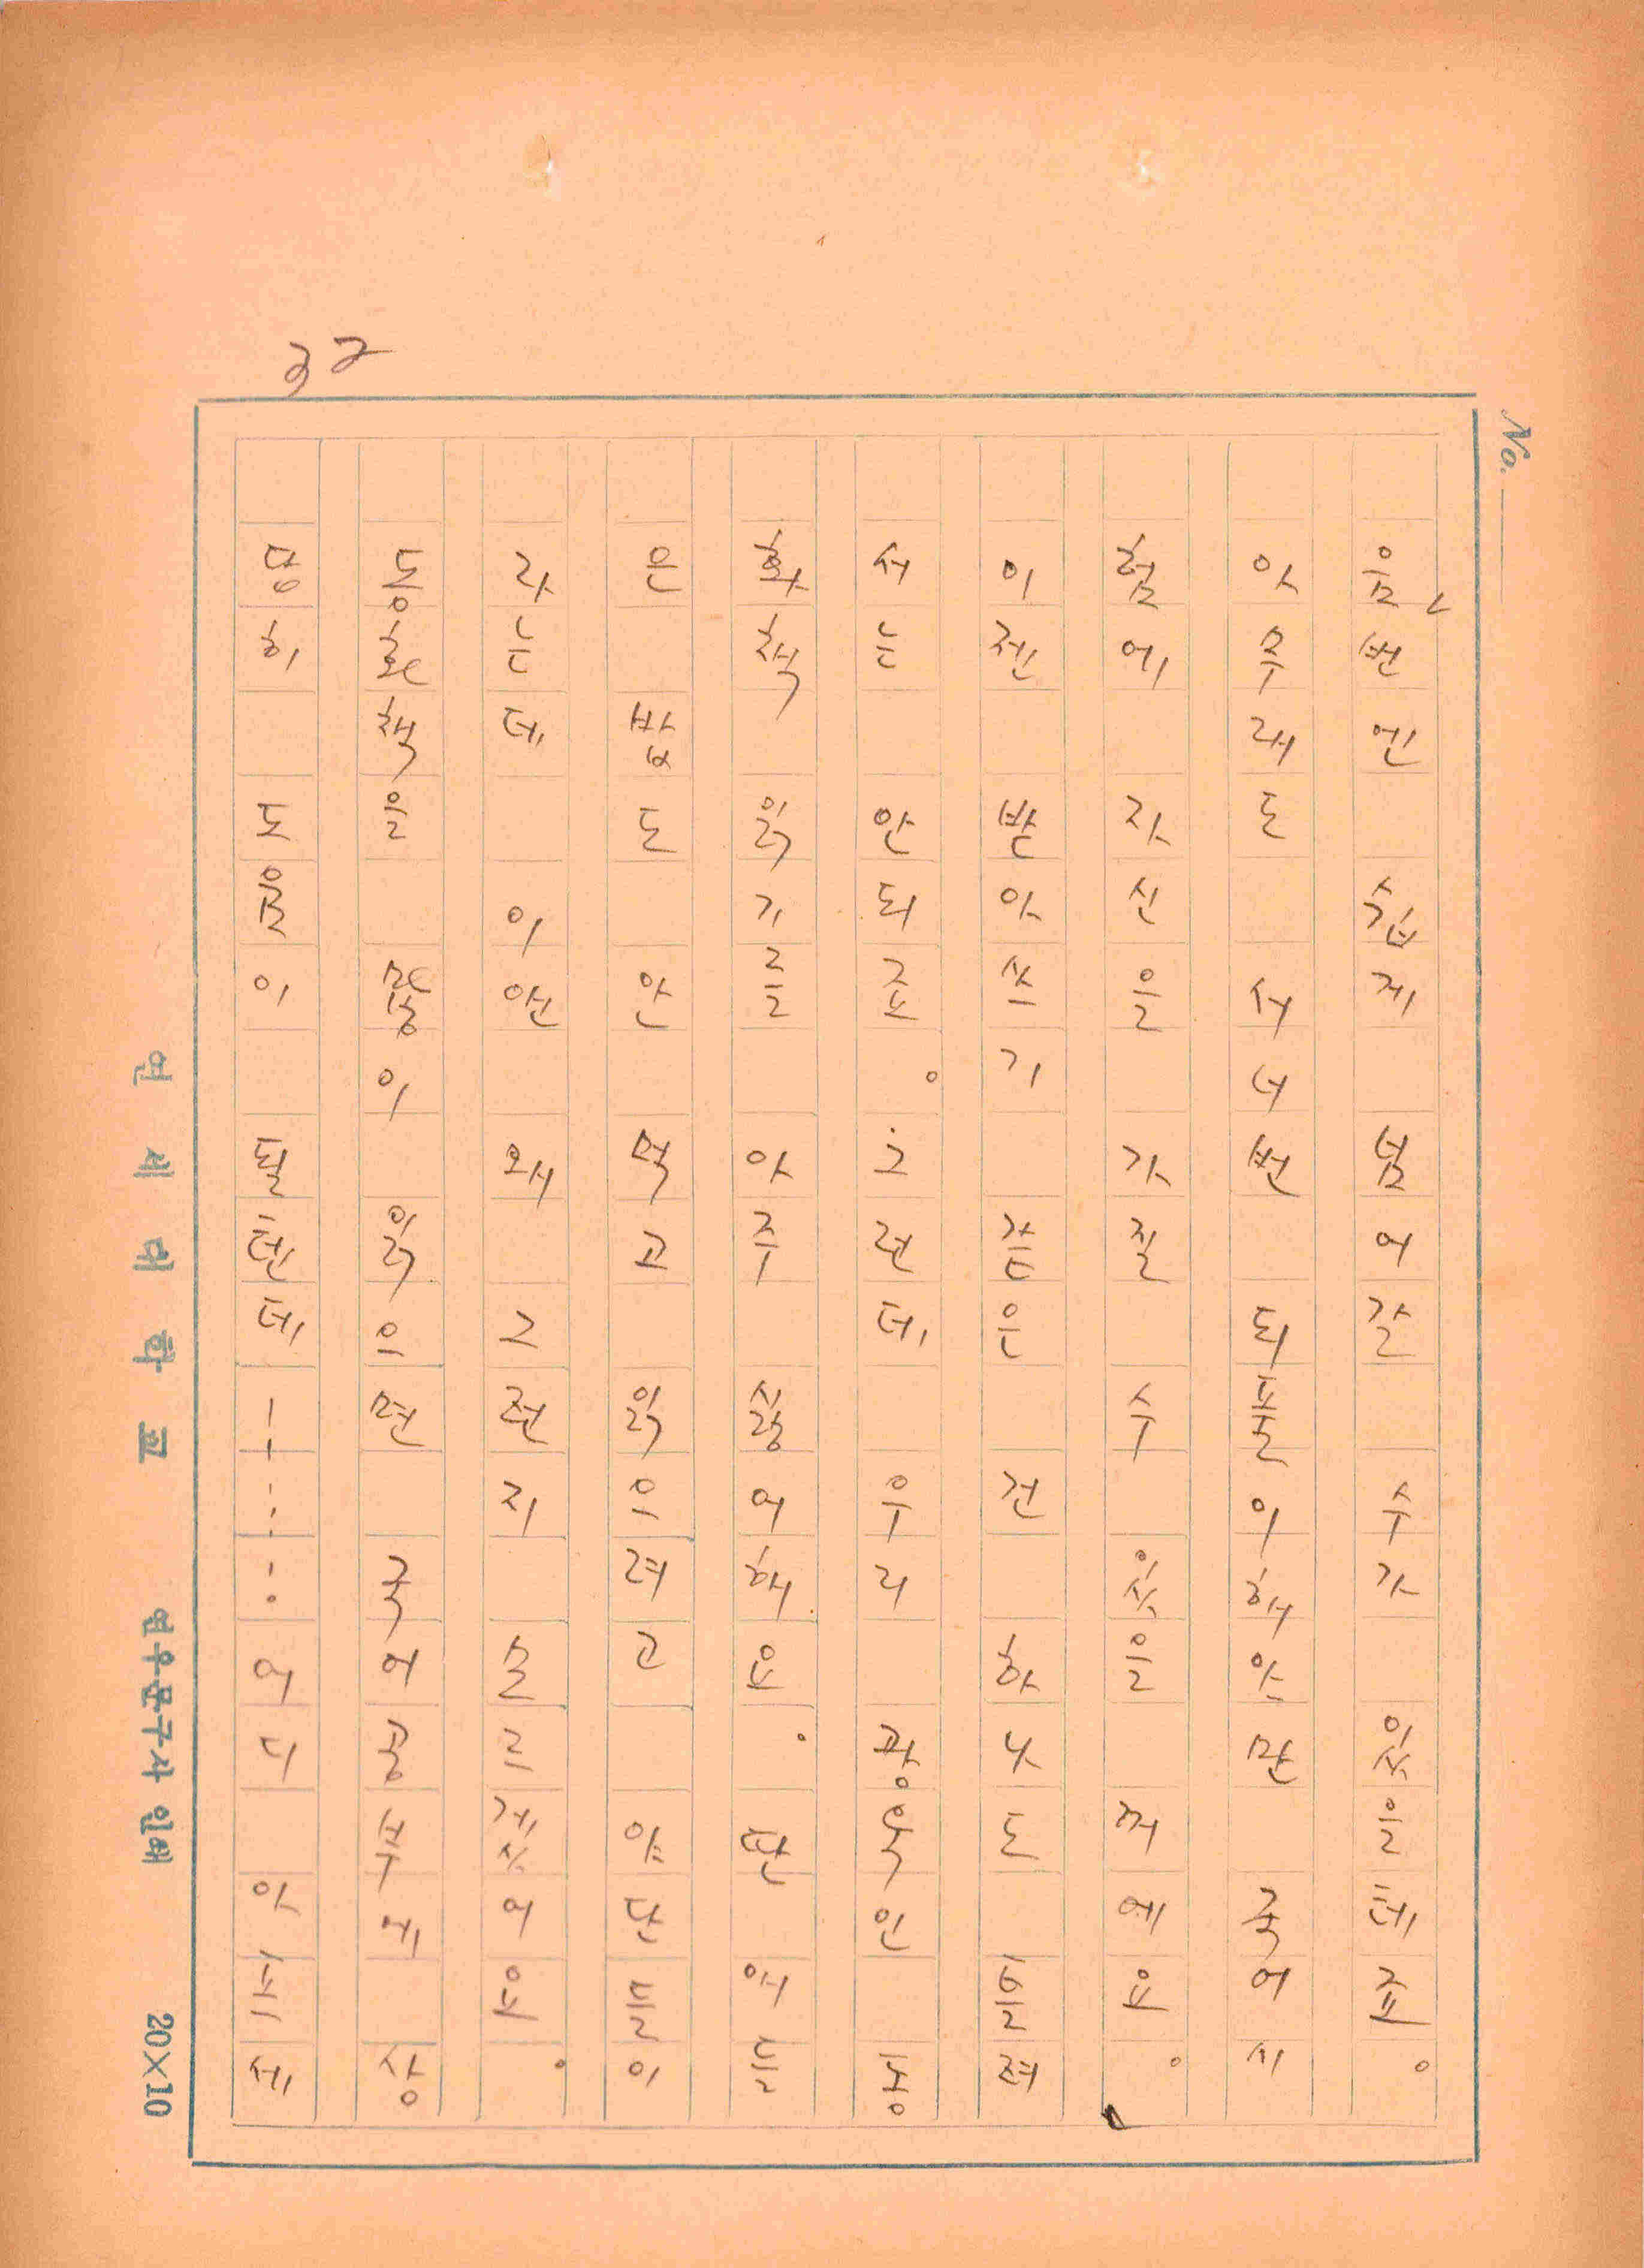 32
No.
음번엔 쉽게 넘어갈 수가 있을테죠。
아무래도 서너번 되풀이해야만 국어시
험에 자신을 가질 수 있을 꺼예요。
이젠 받아쓰기 같은 건 하나도 틀려
서는 안되죠。그런데 우리 광욱인 동
화책 읽기를 아주 싫어해요. 딴 애들
은 밥도 안 먹고 읽으려고 야단들이
라는데 이앤 왜 그런지 몰르겠어요。
동화책을 많이 읽으면 국어공부에 상
당히 도움이 될텐데…… 어디
연세대학교 연우문구사 인쇄 20×10